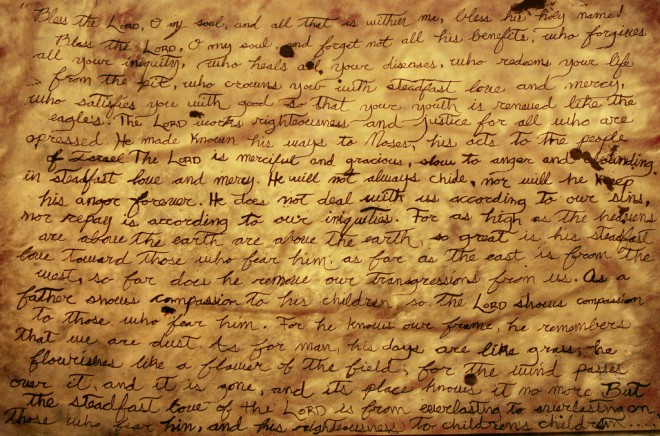 "Bless the LORD, O my soul, and all that is within me, bless his holy name!
Bless the LORD, O my soul, and forget not all his benefits, who forgives
all your iniquity, who heals all your diseases, who redeems your life
from the pit, who crowns you with steadfast love and mercy,
who satisfies you with good so that your youth is renewed like the
eagles. The LORD works righteousness and justice for all who are
opressed. He made known his ways to Moses, his acts to the people
of Israel The LORD is merciful and gracious, slow to anger and abounding
in steadfast love and mercy. He will not always chide, nor will he keep
his anger forever. He does not deal with us according to our sins,
nor repay is according to our iniquities. For as high as the heavens
are above the earth are above the earth, so great is his steadfast
love toward those who fear him, as far as the east is from the
west, so far does he remove our transgressions from us. As a
father shows compassion to his children, so the LORD shows compassion
to those who fear him. For he knows our frame, he remembers
that we are dust As for man, his days are like grass, he
flourishes like a flower of the field; for the wind passes
over it, and it is gone, and its place knows it no more But
the steadfast love of the LORD is from everlasting to everlasting on
those who fear him, and his righteousness to children's children....